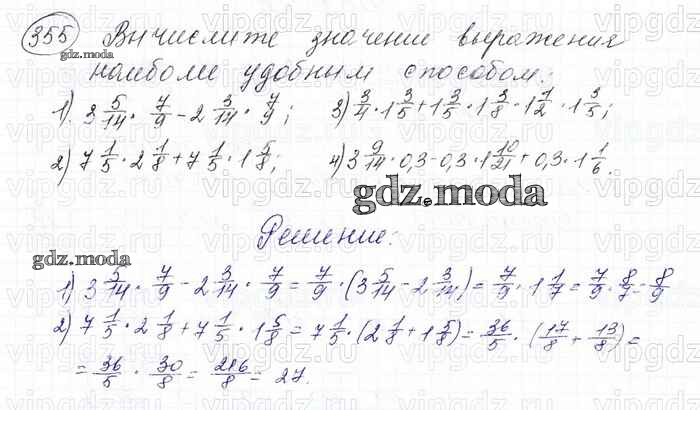 355 Вычислите значение выражения
gdz.moda
наиболее удобным способом:
1) 3 5/14 · 7/9 - 2 3/14 · 7/9; 3) 3/4 · 1 3/5 + 1 3/5 · 1 3/8 - 1 1/2 · 1 3/5;
2) 7 1/5 · 2 1/8 + 7 1/5 · 1 5/8; 4) 3 9/14 · 0,3 - 0,3 · 1 10/21 + 0,3 · 1 1/6.
gdz.moda
Решение:
gdz.moda
1) 3 5/14 · 7/9 - 2 3/14 · 7/9 = 7/9 · (3 5/14 - 2 3/14) = 7/9 · 1 1/7 = 7/9 · 8/7 = 8/9
2) 7 1/5 · 2 1/8 + 7 1/5 · 1 5/8 = 7 1/5 · (2 1/8 + 1 5/8) = 36/5 · (17/8 + 13/8) =
= 36/5 · 30/8 = 216/8 = 27.
vipgdz.ru